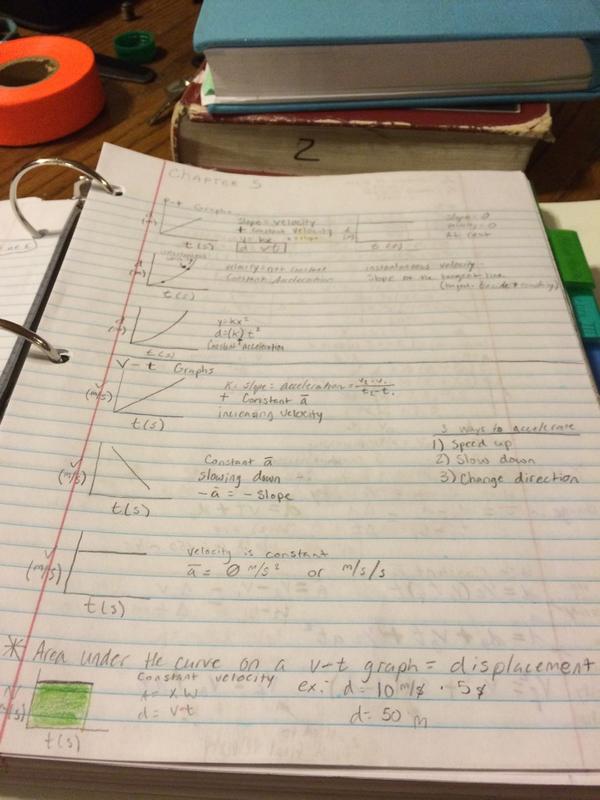 2
CHAPTER 5
P-t Graphs
Slope = velocity
+ constant velocity
y = kx
d = vt
t(s)
Slope = 0
velocity = 0
At rest
t(s)
velocity not constant
Constant Acceleration
t(s)
instantaneous velocity
Slope of the tangent line
y = kx²
d = (k) t²
Constant + acceleration
t(s)
V-t Graphs
V
(m/s)
t(s)
K = slope = acceleration = V₂ - V₁ / t₂ - t₁
+ Constant a̅
increasing velocity
3 ways to accelerate
1) Speed up
2) Slow down
3) Change direction
V
(m/s)
t(s)
Constant a̅
slowing down
-a̅ = - Slope
V
(m/s)
t(s)
velocity is constant
a̅ = 0 m/s² or m/s/s
* Area under the curve on a v-t graph = displacement
t(s)
Constant velocity
A = x w
d = v·t
ex: d = 10 m/s · 5 s
d = 50 m